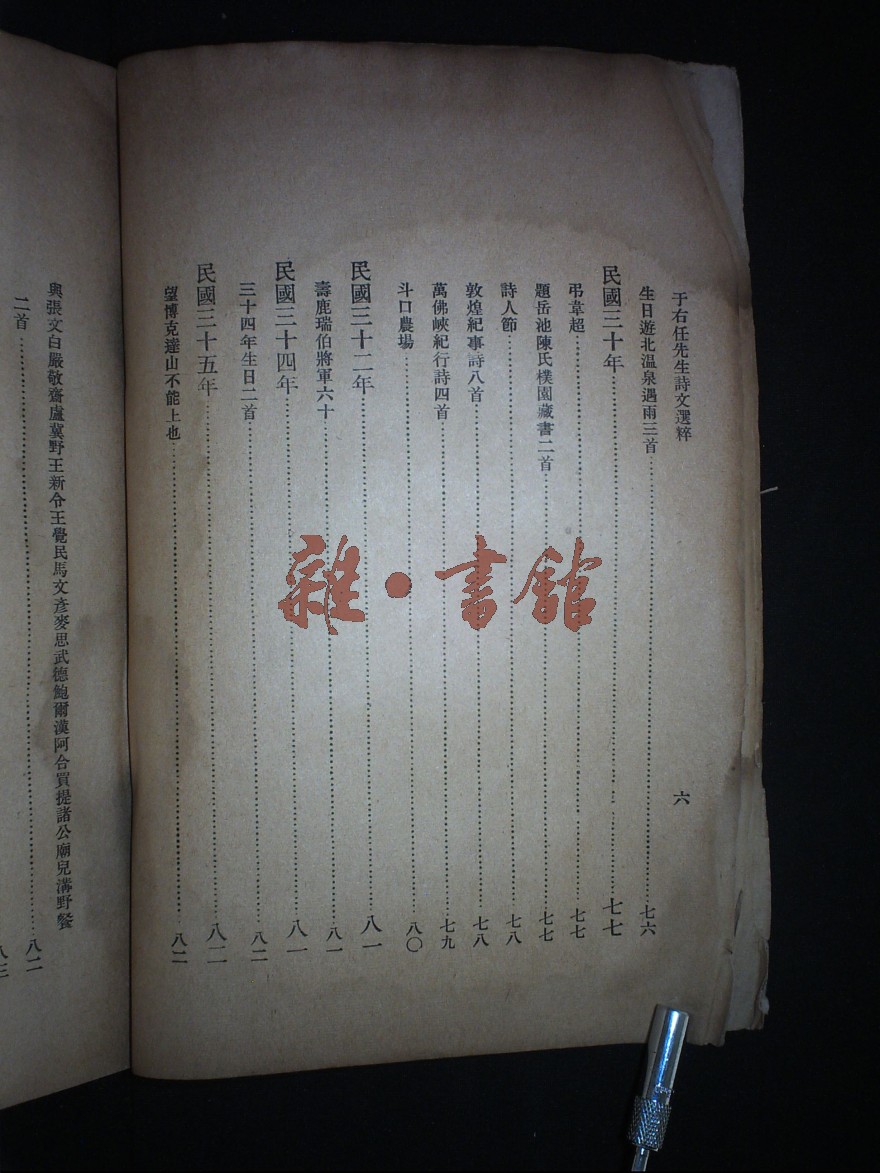 于右任先生詩文選粹
六
生日遊北温泉遇雨三首……七六
民國三十年……七七
弔韋超……七七
題岳池陳氏樸園藏書二首……七七
詩人節……七八
敦煌紀事詩八首……七八
萬佛峽紀行詩四首……七九
斗口農場……八〇
民國三十二年……八一
壽鹿瑞伯將軍六十……八一
民國三十四年……八一
三十四年生日二首……八二
民國三十五年……八二
望博克達山不能上也……八二
與張文白嚴敬齋盧冀野王新令王覺民馬文彥麥思武德鮑爾漢阿合買提諸公廟兒溝野餐
二首……八二
八三
雜·書館